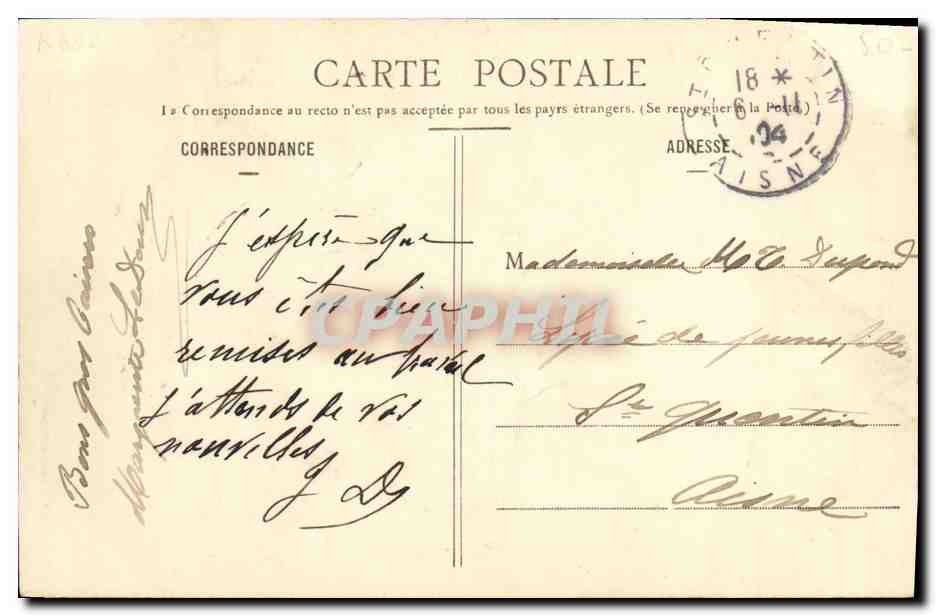 CARTE POSTALE
La Correspondance au recto n'est pas acceptée par tous les pays étrangers. (Se renseigner à la Poste.)
CORRESPONDANCE
ADRESSE
18 *
6 - 11
04
AISNE
J'espère que
vous êtes bien
remises au travail
j'attends de vos
nouvelles
J D
Bons gros baisers
Marguerite
Mademoiselle M. T. Dupond
Lycée de jeunes filles
St Quentin
Aisne
CPAPHIL
50-